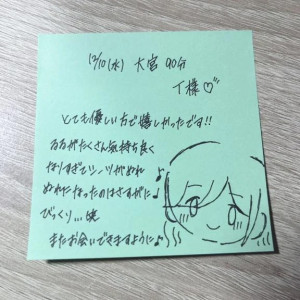 12/10(水) 大宮 90分
イ様♡
とても優しい方で嬉しかったです!!
がたくさん気持ち良く
なりすぎてシーツがぬれ
ぬれになったのはさすがに
びっくり...笑
またお会いできますように♪